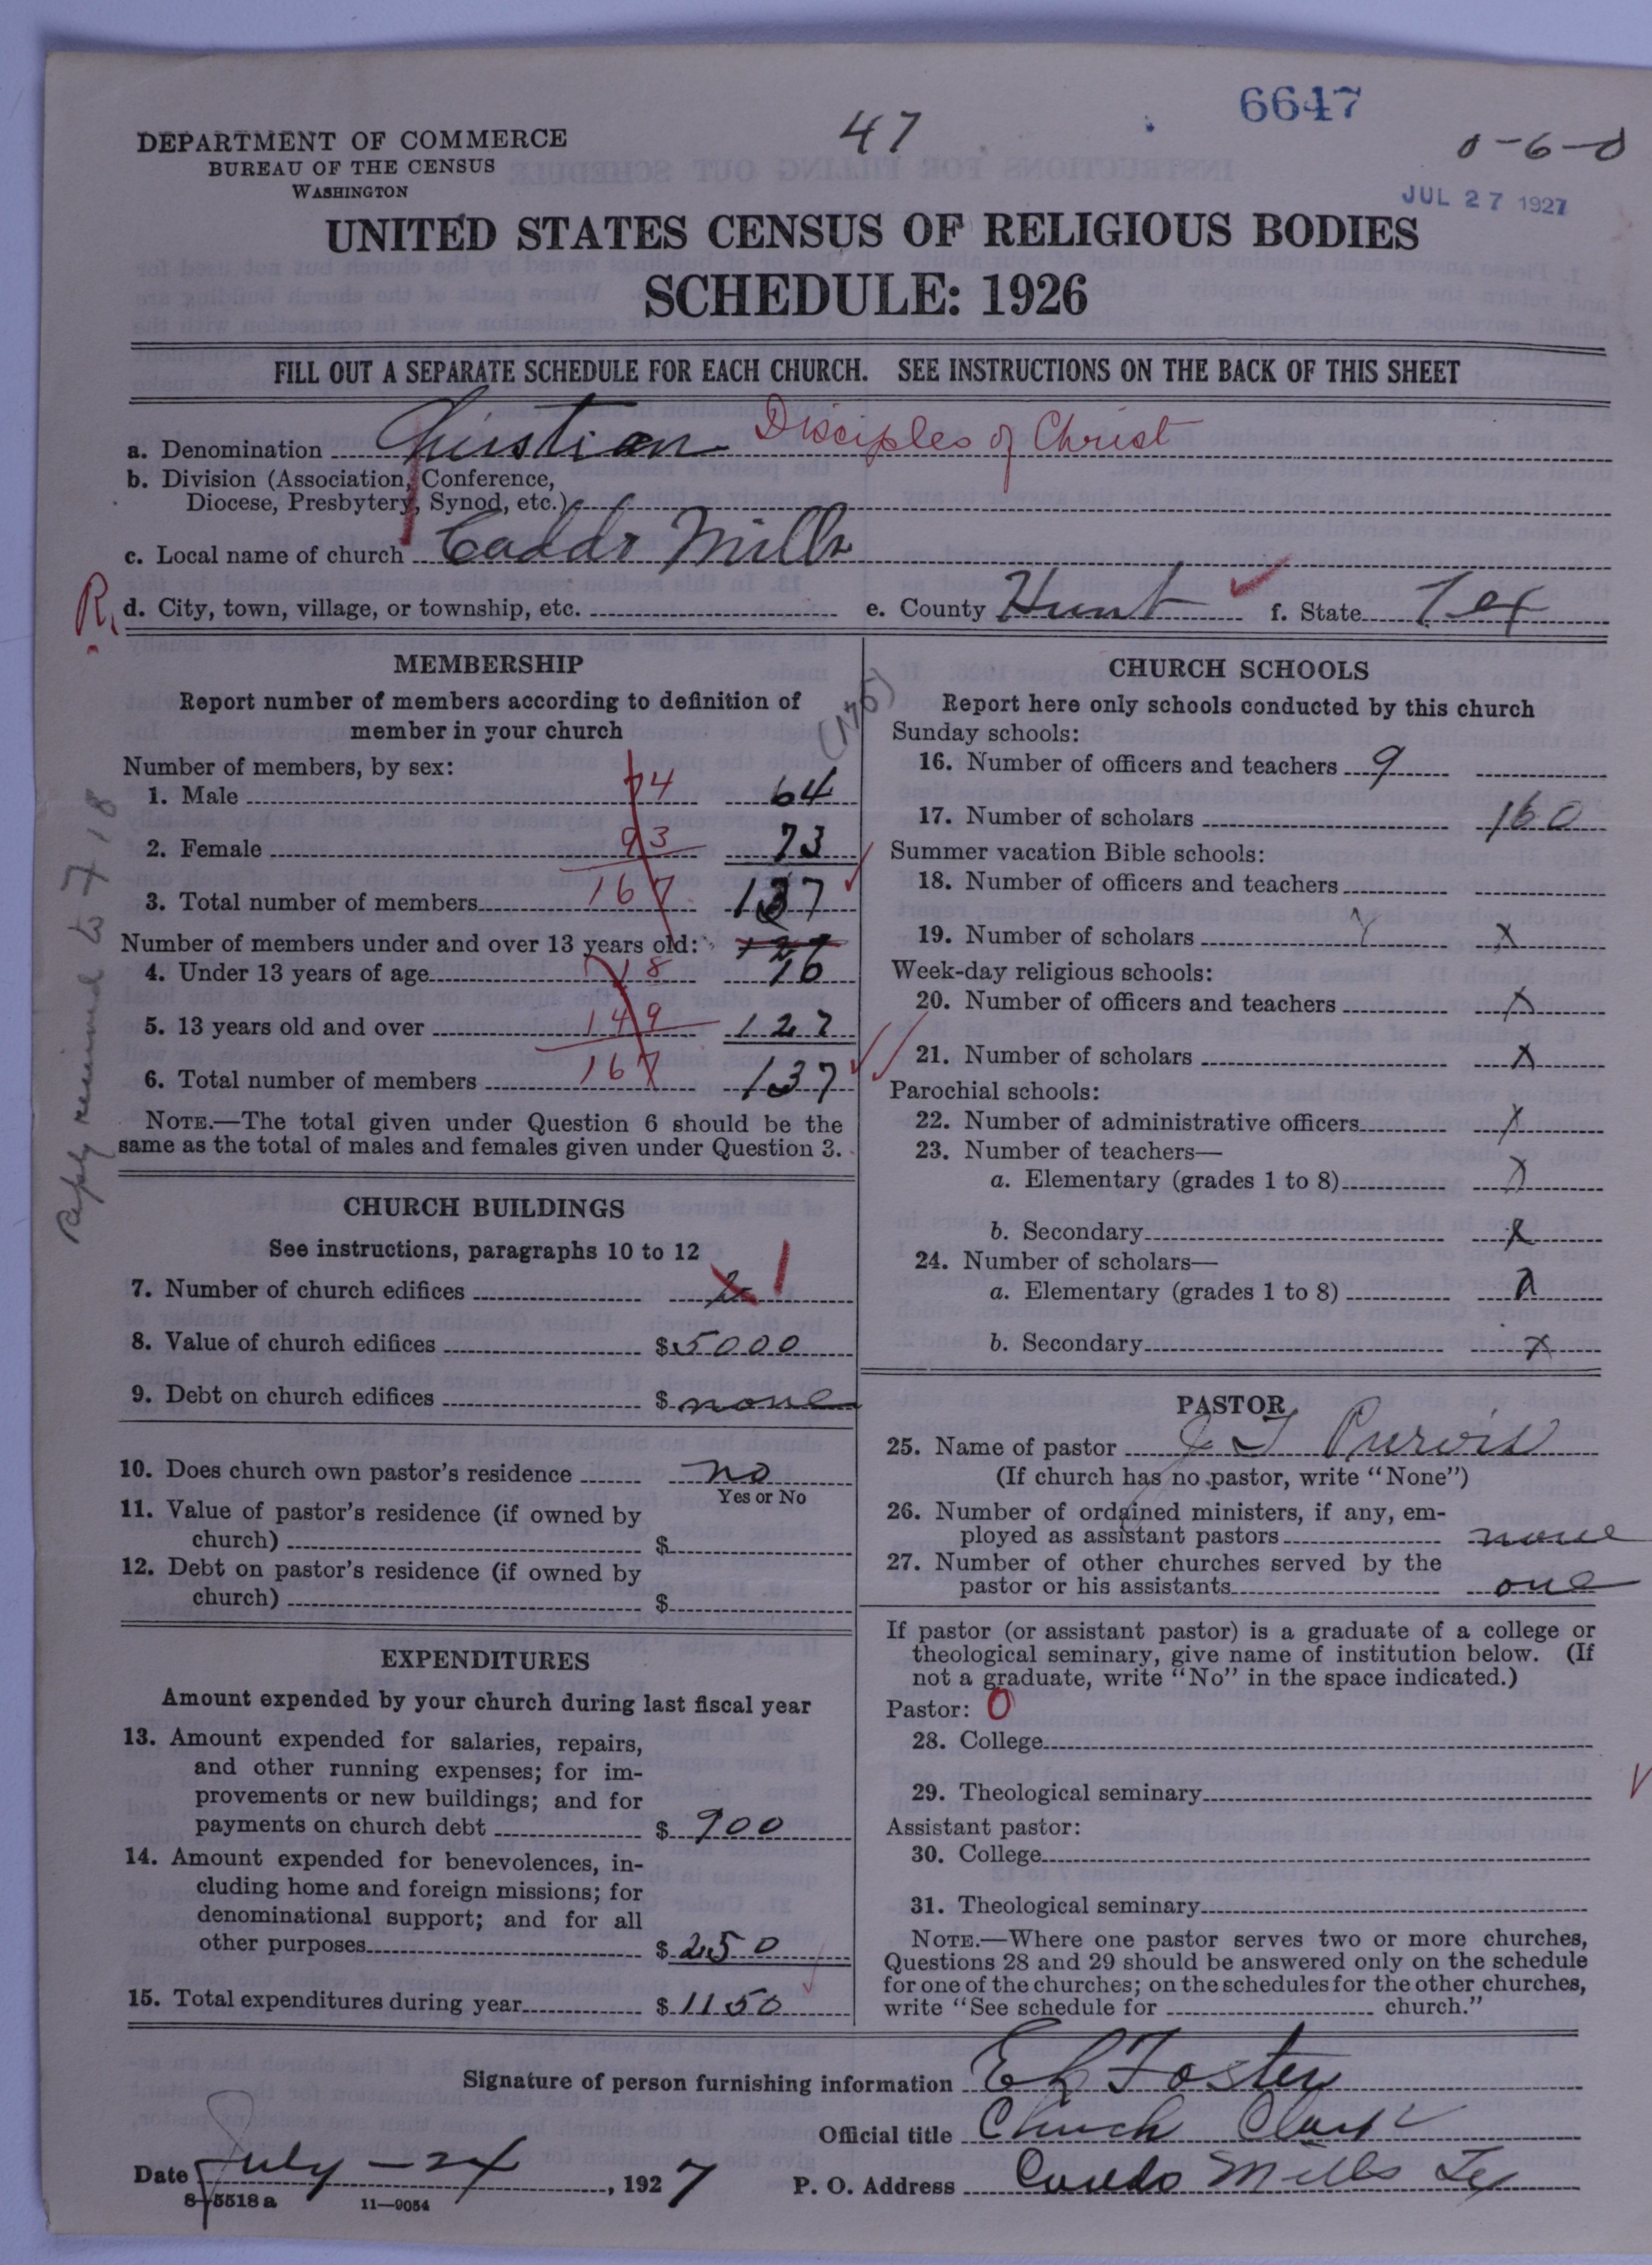 6647
47
0-6-0
DEPARTMENT OF COMMERCE
BUREAU OF THE CENSUS
WASHINGTON
JUL 27 1927
UNITED STATES CENSUS OF RELIGIOUS BODIES
SCHEDULE: 1926
FILL OUT A SEPARATE SCHEDULE FOR EACH CHURCH. SEE INSTRUCTIONS ON THE BACK OF THIS SHEET
a. Denomination Christian Disciples of Christ
b. Division (Association, Conference,
Diocese, Presbytery, Synod, etc.)
c. Local name of church Caddo Mills
R. d. City, town, village, or township, etc. e. County Hunt f. State Tex
MEMBERSHIP
Report number of members according to definition of
member in your church
Number of members, by sex:
1. Male 74 64
2. Female 93 73
3. Total number of members 167 137
Number of members under and over 13 years old: 127
4. Under 13 years of age 18 16
5. 13 years old and over 149 127
6. Total number of members 167 137
NOTE.—The total given under Question 6 should be the
same as the total of males and females given under Question 3.
Reply received to 718
CHURCH BUILDINGS
See instructions, paragraphs 10 to 12
7. Number of church edifices 2 1
8. Value of church edifices $5000
9. Debt on church edifices $ none
10. Does church own pastor's residence no
Yes or No
11. Value of pastor's residence (if owned by
church) $
12. Debt on pastor's residence (if owned by
church) $
EXPENDITURES
Amount expended by your church during last fiscal year
13. Amount expended for salaries, repairs,
and other running expenses; for im-
provements or new buildings; and for
payments on church debt $ 900
14. Amount expended for benevolences, in-
cluding home and foreign missions; for
denominational support; and for all
other purposes $ 250
15. Total expenditures during year $ 1150
CHURCH SCHOOLS
Report here only schools conducted by this church
Sunday schools:
16. Number of officers and teachers 9
17. Number of scholars 160
Summer vacation Bible schools:
18. Number of officers and teachers
19. Number of scholars x
Week-day religious schools:
20. Number of officers and teachers x
21. Number of scholars x
Parochial schools:
22. Number of administrative officers x
23. Number of teachers—
a. Elementary (grades 1 to 8) x
b. Secondary x
24. Number of scholars—
a. Elementary (grades 1 to 8) x
b. Secondary x
PASTOR
25. Name of pastor J T Purvis
(If church has no pastor, write "None")
26. Number of ordained ministers, if any, em-
ployed as assistant pastors none
27. Number of other churches served by the
pastor or his assistants one
If pastor (or assistant pastor) is a graduate of a college or
theological seminary, give name of institution below. (If
not a graduate, write "No" in the space indicated.)
Pastor: 0
28. College
29. Theological seminary
Assistant pastor:
30. College
31. Theological seminary
NOTE.—Where one pastor serves two or more churches,
Questions 28 and 29 should be answered only on the schedule
for one of the churches; on the schedules for the other churches,
write "See schedule for church."
Signature of person furnishing information E L Foster
Official title Church Clerk
Date July - 24, 1927 P. O. Address Caddo Mills Tex
8-5518a 11-9054